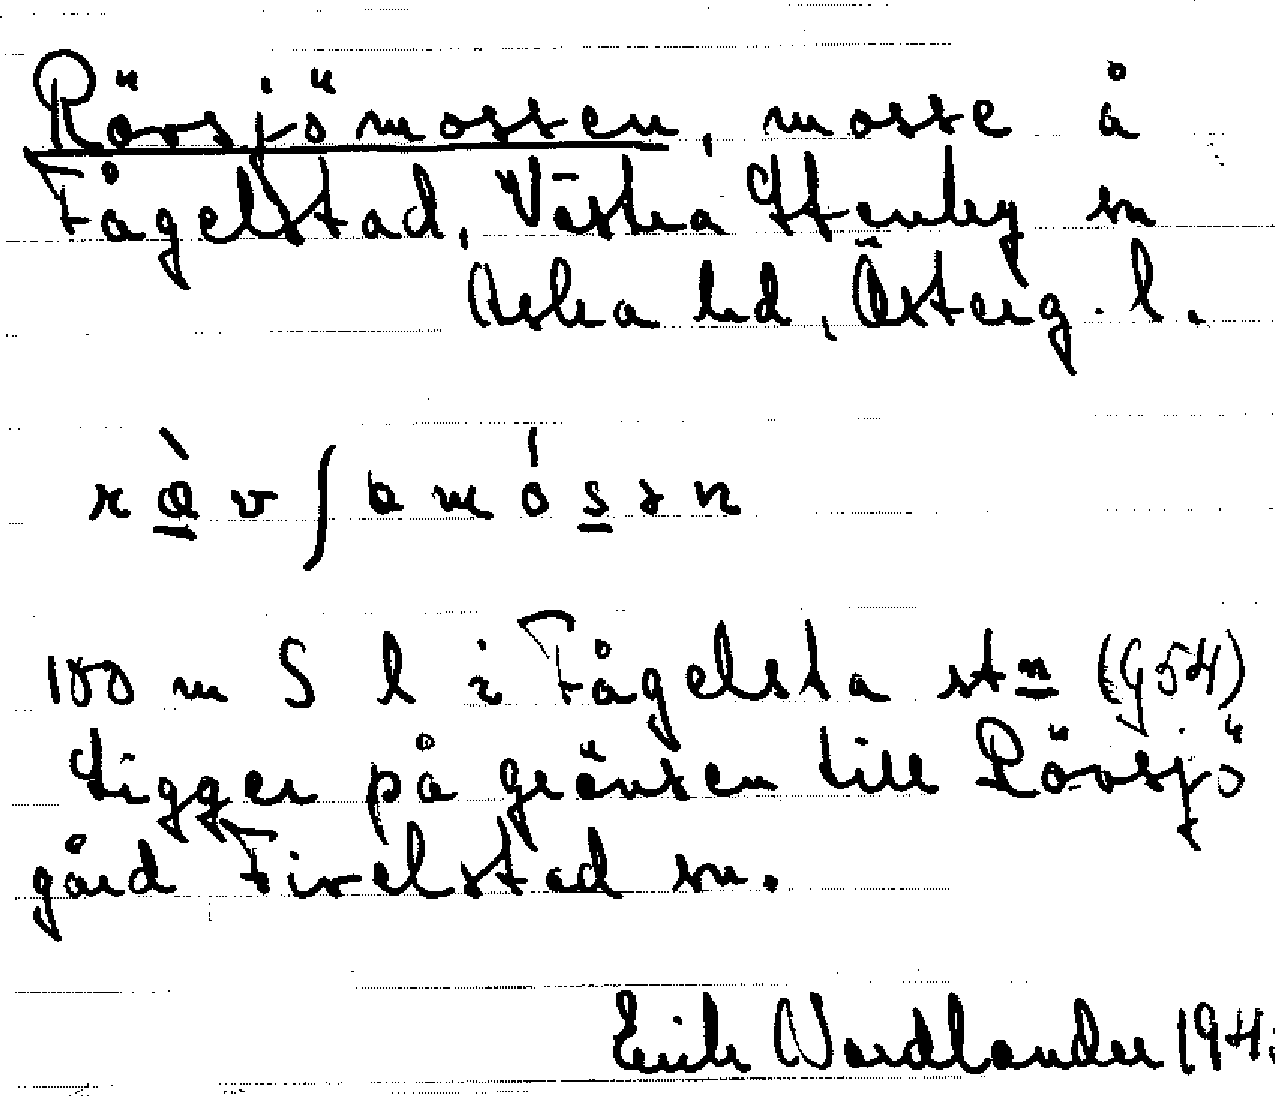 Rövsjömossen, mosse å
Fågelstad, Västra Stenby sn
Aska hd, Österg. l.
100 m S l i Fågelsta stn (G54)
Ligger på gränsen till Rövsjö
gård Fivelstad sn.
Erik Nordlander 194